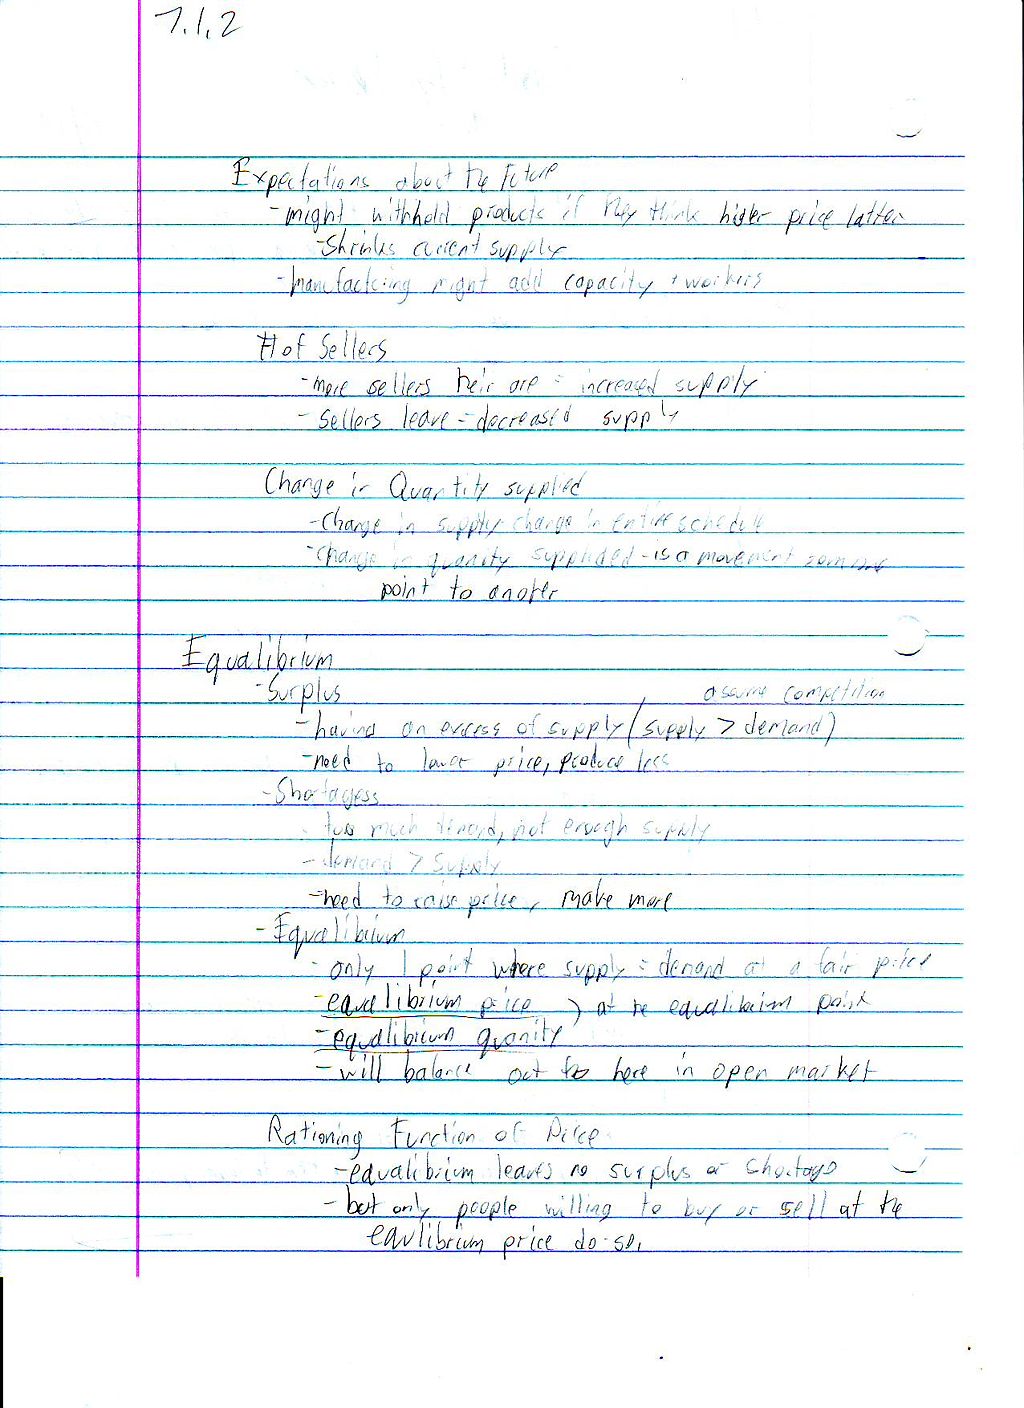 7.1.2
Expectations about the Future
-might withhold products if they think higher price latter
-Shrinks current supply
-manufacturing might add capacity + workers
# of Sellers
-more sellers their are = increased supply
-sellers leave = decreased supply
Change in Quantity supplied
-change in supply-change in entire schedule
-change in quanity supplided-is a movement
point to another
Equalibrium
-Surplus
asume competition
-having an excess of supply (supply > demand)
-need to lower price, produce less
-Shortagess
- too much demand, not enough supply
-demand > supply
-need to raise price, make more
-Equalibrium
- only 1 point where supply = demand at a fair price
-equalibrium price ) at the equalibrium point
-equalibrium quanity
-will balance out to here in open market
Rationing Function of Price
-equalibrium leaves no surplus or shortage
-but only people willing to buy or sell at the
eaulibrium price do so.